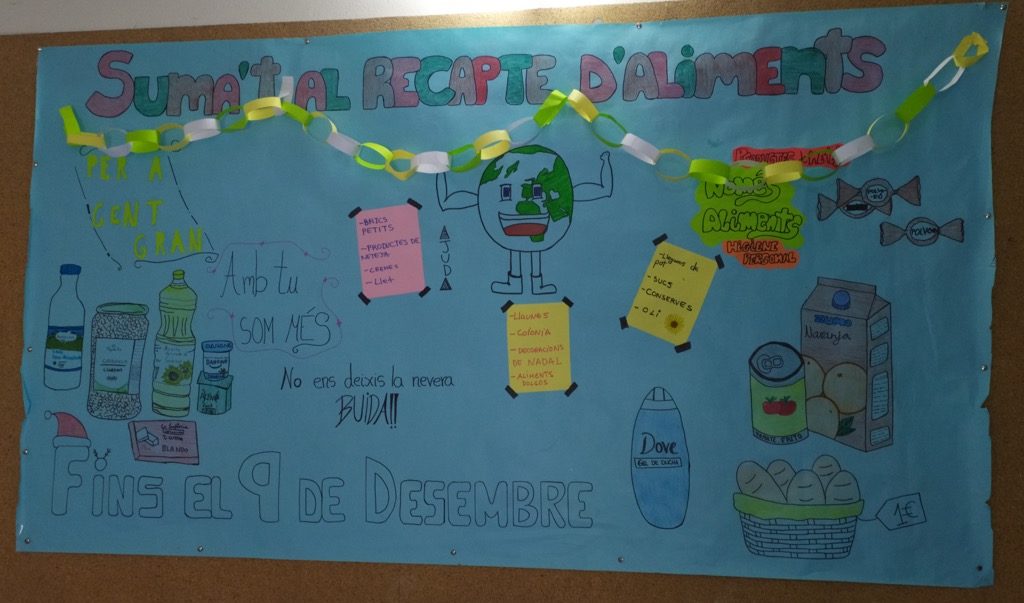 SUMA'T AL RECAPTE D'ALIMENTS
PER A
GENT
GRAN
Amb tu
SOM MÉS
-BRICS
PETITS
-PRODUCTES DE
NETEJA
-CREMES
-Llet
AJUDA
-LLAUNES
-COLÒNIA
-DECORACIONS
DE NADAL
-ALIMENTS
DOLÇOS
-Llegums de
pot
-SUCS
-CONSERVES
-OLI
Només
Aliments
HIGIENE
PERSONAL
POLVORÓ
No ens deixis la nevera
BUIDA!!
BLANDO
FINS EL 9 DE DESEMBRE
Dove
GEL DE DUCHA
TOMATE FRITO
Naranja
1€